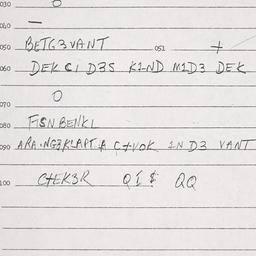 030 0
040 —
050 BETG3VANT 051 +
060 DEK CI D3S K1ND M1D3 DEK
0
070
080 FISN BENKL
090 C+VOK 1ND3 VANT
100 C+EK3R QI $ QQ